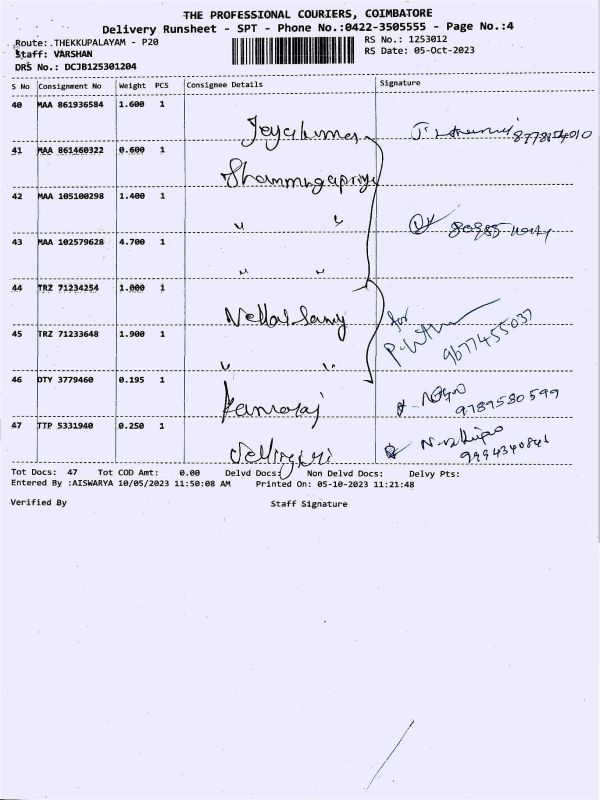 THE PROFESSIONAL COURIERS, COIMBATORE
Delivery Runsheet - SPT - Phone No.:0422-3505555 - Page No.:4
Route: THEKKUPALAYAM - P20 RS No.: 1253012
Staff: VARSHAN RS Date: 05-Oct-2023
DRS No.: DCJB125301204
S No Consignment No Weight PCS Consignee Details Signature
40 MAA 861936584 1.600 1
Jeyakumar
41 MAA 861460322 0.600 1
Shanmugapriya
42 MAA 105100298 1.400 1
" "
43 MAA 102579628 4.700 1
" "
44 TRZ 71234254 1.000 1
for
Vellai Samy
45 TRZ 71233648 1.900 1 9677455037
" "
46 DTY 3779460 0.195 1
Kamaraj 9789580599
47 TTP 5331940 0.250 1
Tot Docs: 47 Tot COD Amt: 0.00 Delvd Docs: Non Delvd Docs: Delvy Pts:
Entered By :AISWARYA 10/05/2023 11:50:08 AM Printed On: 05-10-2023 11:21:48
Verified By Staff Signature